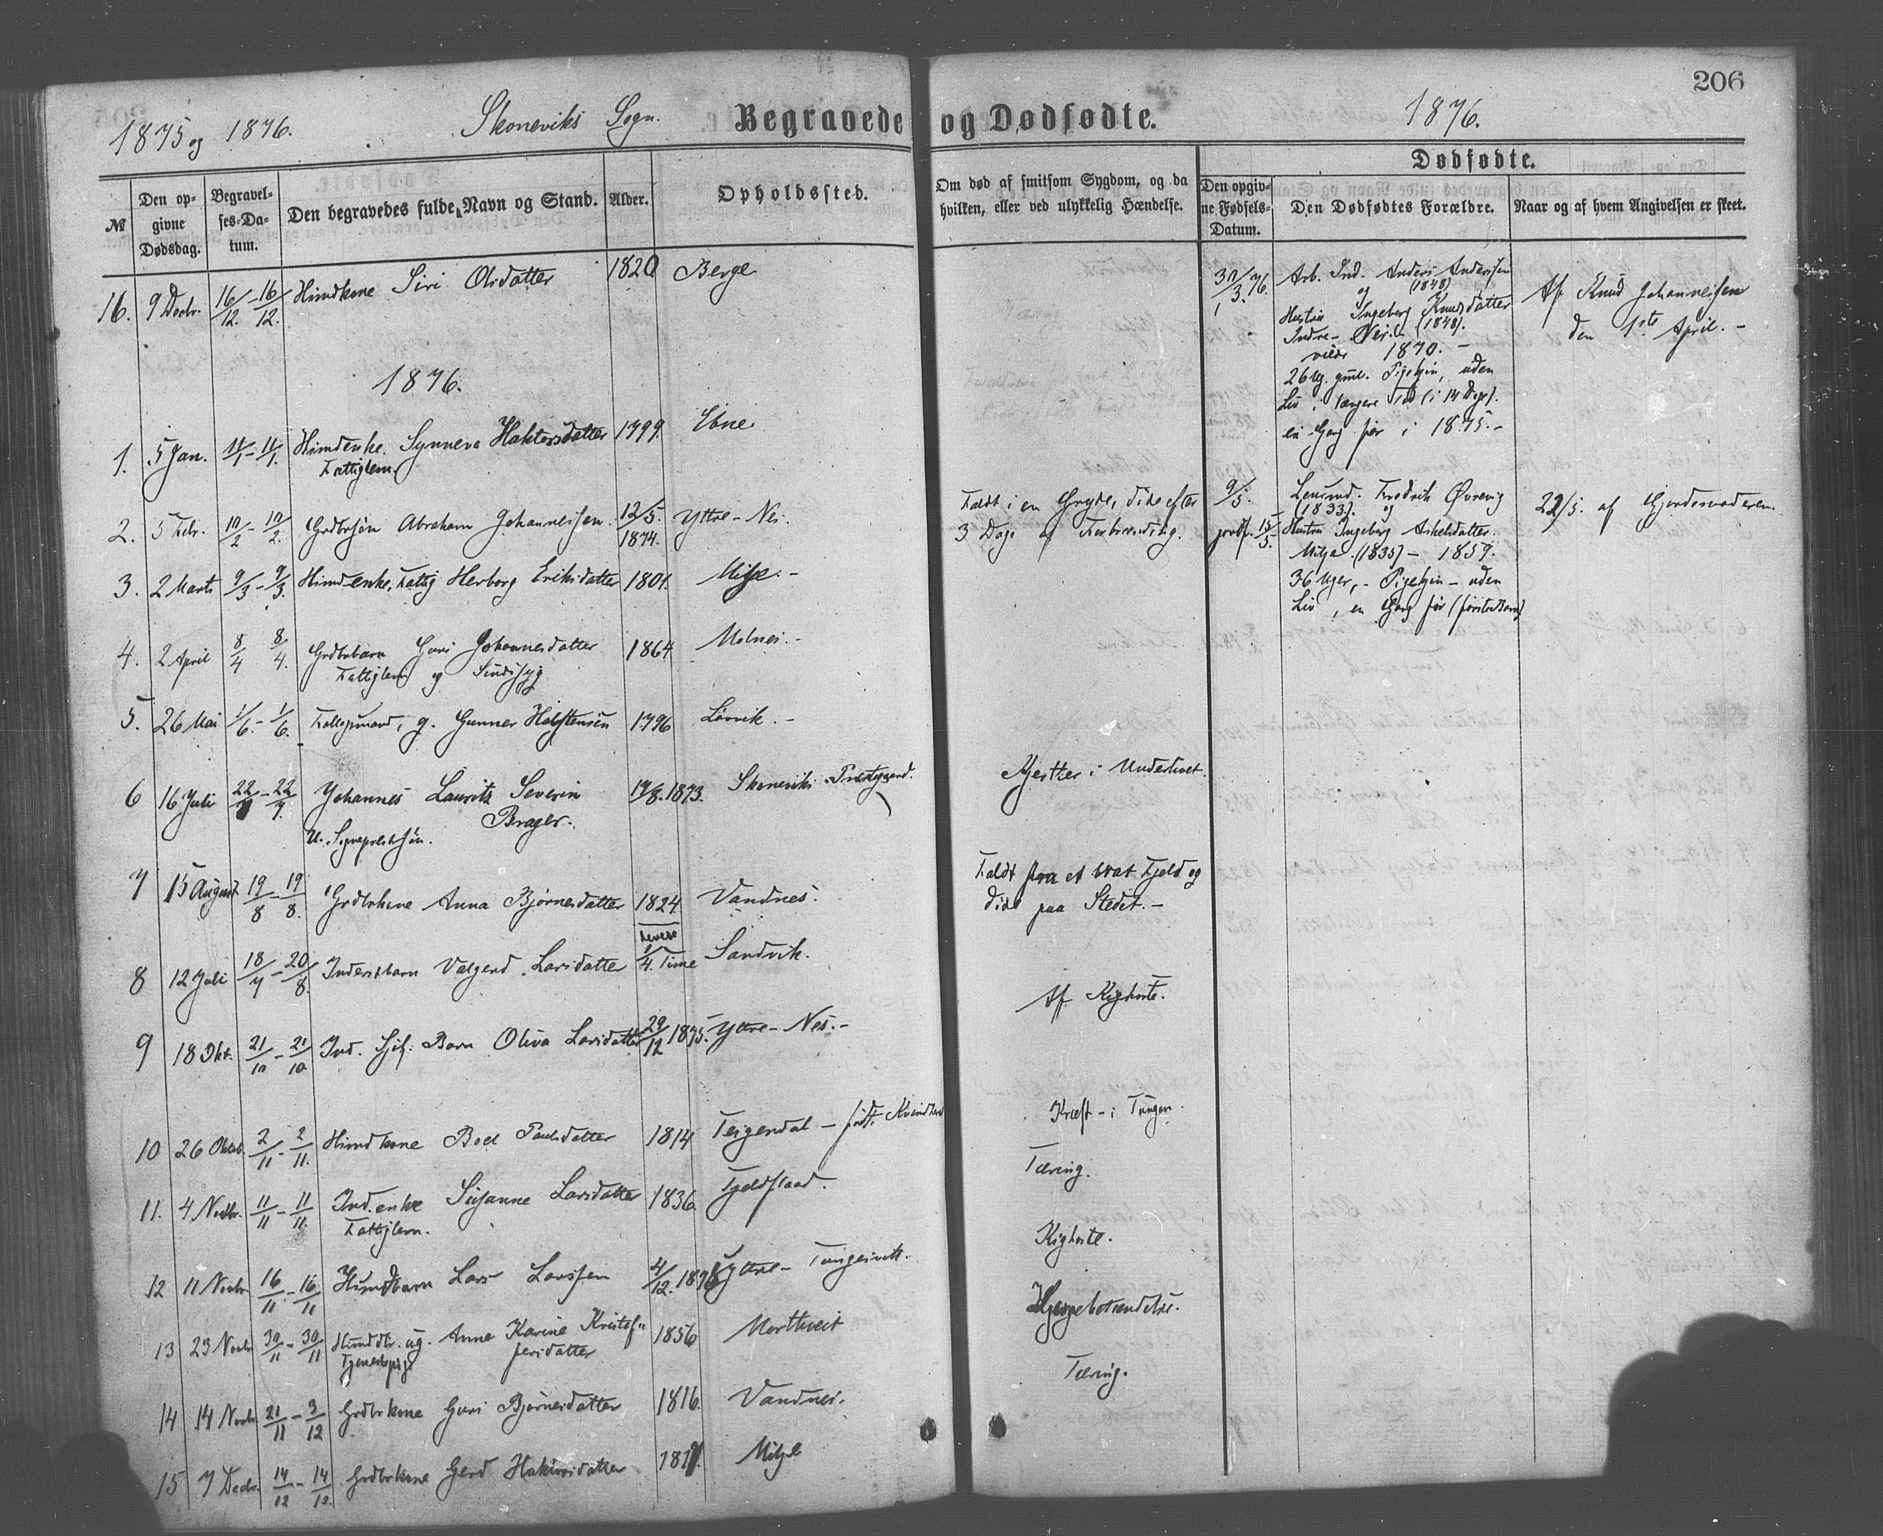 206
1875 og 1876. Skoneviks Sogn. Begravede og Dødfødte. 1876.
Dødfødte.
№ Den opgivne Dødsdag. Begravelses-Datum. Den begravedes fulde Navn og Stand. Alder. Opholdssted. Om død af smitsom Sygdom, og da hvilken, eller ved ulykkelig Hændelse. Den opgivne Fødsels-Datum. Den Dødfødtes Forældre. Naar og af hvem Angivelsen er skeet.
16. 9 Decbr. 16/12. - 16/12. Huusmdkone Siri Olsdatter 1820 Berge
1876.
1. 5 Jan. 11/1 - 11/1. Huusmdenke. Synneva Haktorsdatter 1799. Ebne
Fattiglem
2. 5 Febr. 10/2 - 10/2. Grdbrsøn Abraham Johannessen. 12/5. 1874. Yttre-Nes. Faldt i en Gryde, døde efter
3 Dage af Forbrænding.
3. 2 Marts 9/3 - 9/3. Huusmdenke, Fattig Herborg Eriksdatter 1801. Milje.-
4. 2 April 8/4 8/4. Grdbrbarn Guri Johannesdatter 1864 Molnes.-
Fattiglem og Sindssyg
5. 26 Mai 1/6 - 1/6. g. Gunner Halstensen 1796 Løvvik.-
6 16 Juli 22/7 - 22/7. Johannes Lauritz Severin 17/8. 1873. Skoneviks Prestegaard. i Underlivet.
Brager.
U. Sognepræstsøn.
7 15 August 19/8 - 19/8. Grdbrkone Anna Bjørnesdatter 1824 Vandnes. Faldt fra et brat Fjeld og
døde paa Stedet.-
8 12 Juli 18/7 - 20/8. Inderstbarn Valgerd Larsdatter levede 1/4. Time Sandvik.
Af Kighoste.
9 18 Okt. 21/10 - 21/10 Ind. Barn Oliva Larsdatter 29/12 1875. Yttre-Nes.-
10 26 Oktob. 2/11 - 2/11. Huusmdkone Boel Paulsdatter 1814 Teigendal - født i Kræft - i Tungen.
11. 4 Novbr. 11/11 - 11/11. Ind.enke Susanne Larsdatter 1836. Fjeldstad. Tæring.
Fattiglem.
12 11 Novbr 16/11 - 16/11 Huusmdbarn Lars Larssen 4/12. Yttre-Tungesvik. Kighoste.
13 23 Novbr 30/11 - 30/11 Huusmddtr. ug. Anne Karine Kristof- 1856 Mortveit Hjernebetændelse.
Tjenestepige fersdatter
14 14 Novbr 21/11 - 3/12 Grdbrkone Guri Bjørnesdatter 1816. Vandnes. Tæring.
15 7 Decbr. 14/12 - 14/12. Grdbrkone Gerd Hakversdatter Milje
30/3. 76. Arb. Ind. Anders Anderssen
(1848)
og
Hustru Ingeborg Knudsdatter
Indre- (1848).
1870.-
26 Ug. gml. Pigebrn, uden
Liv i længere Tid (i 14 Dage).
en Gang før i 1875.-
Af Knud Johannessen
den 1ste April.-
9/5. Fredrik Øvrevig
(1833). og
jordf. 15/5. Hustru Ingeborg Askelsdatter.
Milje (1835) - 1859.
36 Uger, - Pigebrn - uden
Liv, en Gang før (første Barn)
22/5. af Gjordemoderen.